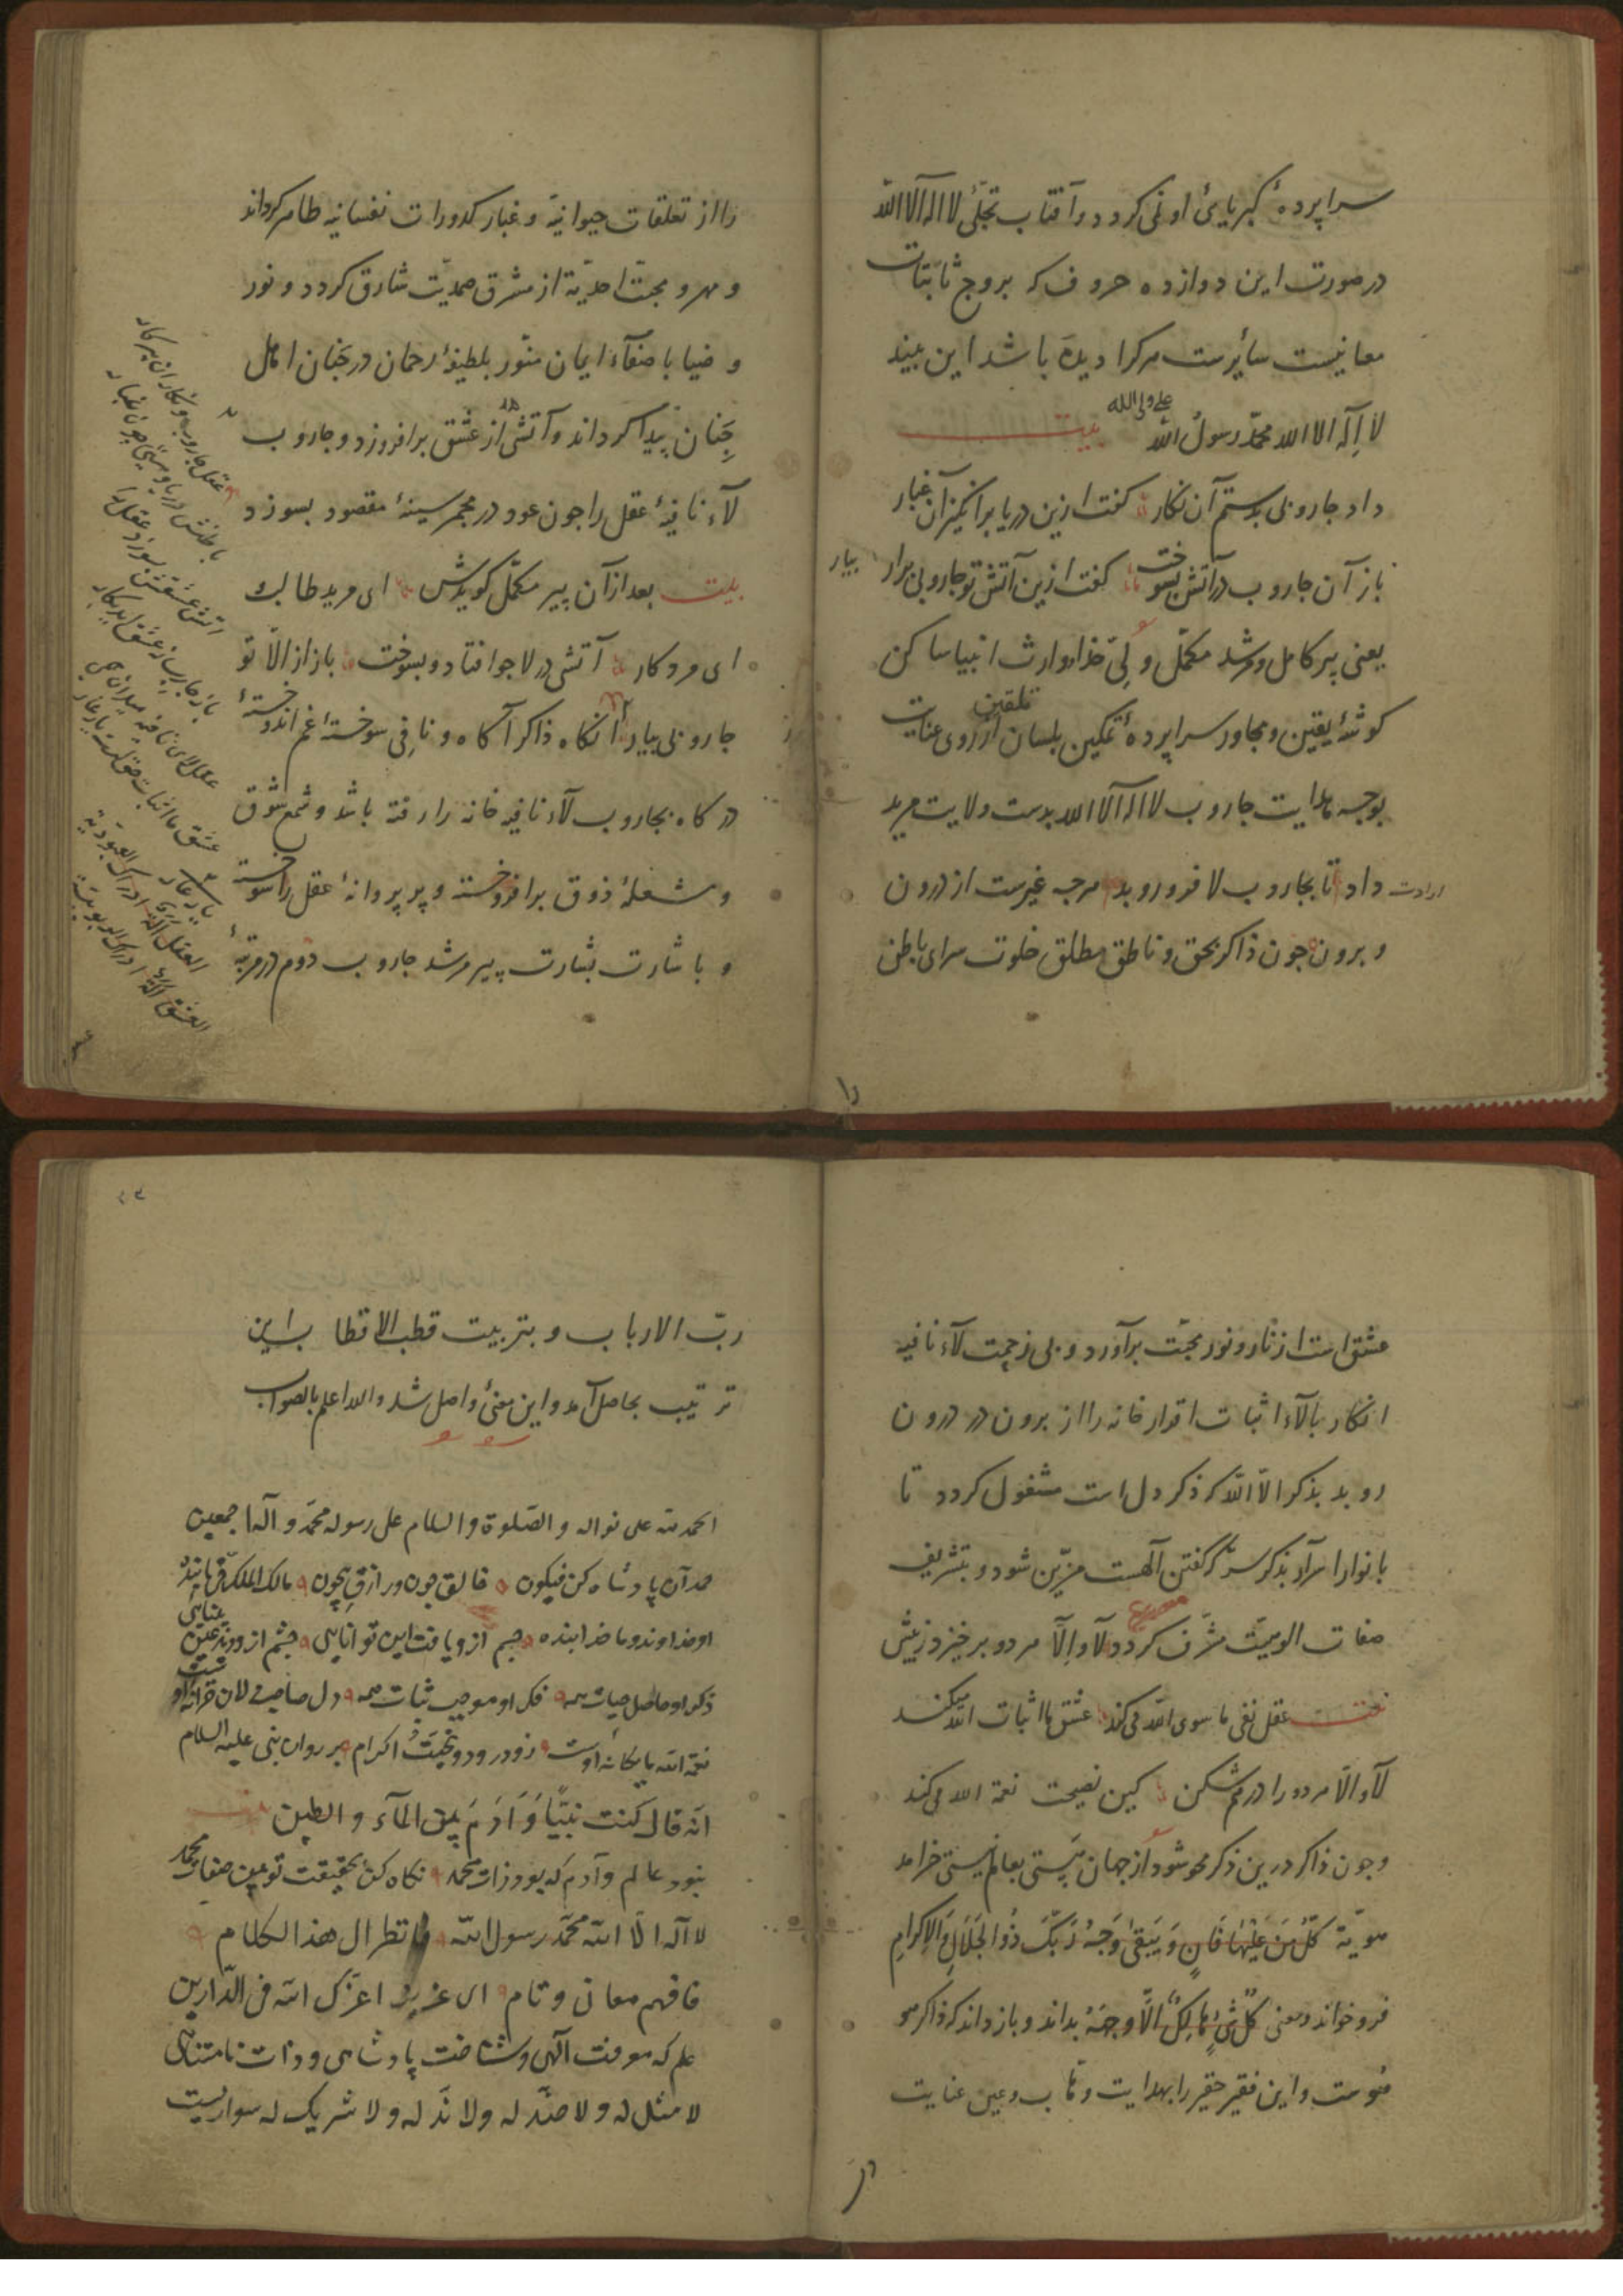 سراپردۀ کبریایئ او نی کردد و آفتاب تجلّئ لا اله الا الله
در صورت این دوازده حروف که بروج ثابتات
معانیست سائرست هرکرا دیده باشد این بیند
لا اِلٓه الا الله محمّد رسول الله علی ولی الله بیت
داد جاروبی بدستم آن نکار کفت ازین دریا برانکیزان غبار
باز آن جاروب در آتش بسوخت کفت ازین آتش تو جاروبی برار بیار
یعنی پیر کامل و مرشد مکمّل و لیّ خدا وارث انبیا ساکن
کوشۀ یقین و مجاور سراپردۀ تمکین بلسان تلقین از روی عنایت
بوجه هدایت جاروب لا اله الا الله بدست ولایت مرید
ارادت داد تا بجاروب لا فرو روبد هرجه غیرست از درون
و برون جون ذاکر بحق و ناطق مطلق خلوت سرای باطن
را
را از تعلقات حیوانیّه و غبار کدورات نفسانیه طاهر کرداند
و مهر و محبّت احدیّة از مشرق صمدیّت شارق کردد و نور
و ضیا با صفآء ایمان منوّر بلطیفۀ رحمان در جَنان اهل
جِنان پیدا کرداند و آتشی از عشق برافروزد و جاروب
لآء نافیۀ عقل را جون عود در مجمر سینۀ مقصود بسوزد
بیت بعد ازآن پیر مکمّل کویدش ای مرید طالب
ای مرو کار آتشی در لا جو افتاد و بسوخت باز از الّا تو
جاروبی بیار آنکاه ذاکر آکاه و نافی سوختۀ غم اندوختۀ
درکاه بجاروب لآء نافیه خانه را رفته باشد و شمع شوق
و شعلۀ ذوق برافروخته و پر پروانۀ عقل را سوخته
و باشارت بشارت پیر مرشد جاروب دوم در مرتبۀ
عقل جاروبت و نکار آن پیر کار
باطنش دریا و هستی جون غبار
آتش عشقش بسوزد عقل را
باز جاروبی ز عشق آید بکار
عقل لای نافیه میدان همی
عشق ما اثبات حق کشت یار غار
یار غار
العقل آلة ادراک العبودیة
العشق آلة ادراک الربوبیّة
عشق است از نار و نور محبّت برآورد و بی زحمت لآء نافیه
انکار بالّآء اثبات اقرار خانه را از برون در درون
روبد بذکر الّا الله که ذکر دل است مشغول کردد تا
بانوار اسرار بذکر سرّ که کفتن آلهست مزیّن شود و بتشریف
صفات الوهیّت مشرّف کردد مصرع لا و اِلّا هردو برخیزد ز پیش
عقل نفی ما سوی الله می کند عشق ما اثبات الله میکند
لآء و الّا هردو را درهم شکن کین نصیحت نعمة الله می کند
و جون ذاکر درین ذکر محو شود از جهان هستی بعالم نیستی خرامد
هویّة کُلُّ مَن عَلَیْها فَانٍ وَ یَبْقی وَجْهُ رَبِّکَ ذُو الجَلَالِ وَ الاِکرامِ
فرو خواند و معنی کُلُّ شَیْءٍ هالِکٌ اِلّا وجهَهُ بداند و باز داند که ذاکر هو
هوست و این فقیر حقیر را بهدایت وهّاب و عین عنایت
ربّ الارباب و بتربیت قطب الاقطاب این
ترتیب بحاصل آمد و این معنئ واصل شد والله اعلم بالصواب
الحمد لله علی نواله و الصّلوة و السلام علی رسوله محمّد و آله اجمعین
حمد آن پادشاه کن فیکون خالق جون و رازق بیچون مالک الملک فرمانبده
او خداوند و ما خدا بنده جسم ازو یافت این توانایی چشم ازو دید عین بینایی
ذکر او حاصل حیات همه فکر او موجب ثبات همه دل صاحبدلان خزانۀ اوست
نعمة الله یا یکانه اوست درود و تحیّت اکرام بر روان نبی علیه السلام
انّه قال کنت نبیّاً وَ آدَمَ بین المآء و الطین
نبود عالم و آدم که بود ذات محمد نکاه کن بحقیقت تو بعین صفات محمد
لا آله الّا الله محمّد رسول الله فانظر الی هذا الکلام
فافهم معانی و تام ای عزیز اعزّک الله فی الدّارین
علم که معرفت آلهی و شناخت پادشاهی و ذات نامتناهی
لا مثل له و لا ضدّ له ولا ندّ له و لا شریک له سواریست